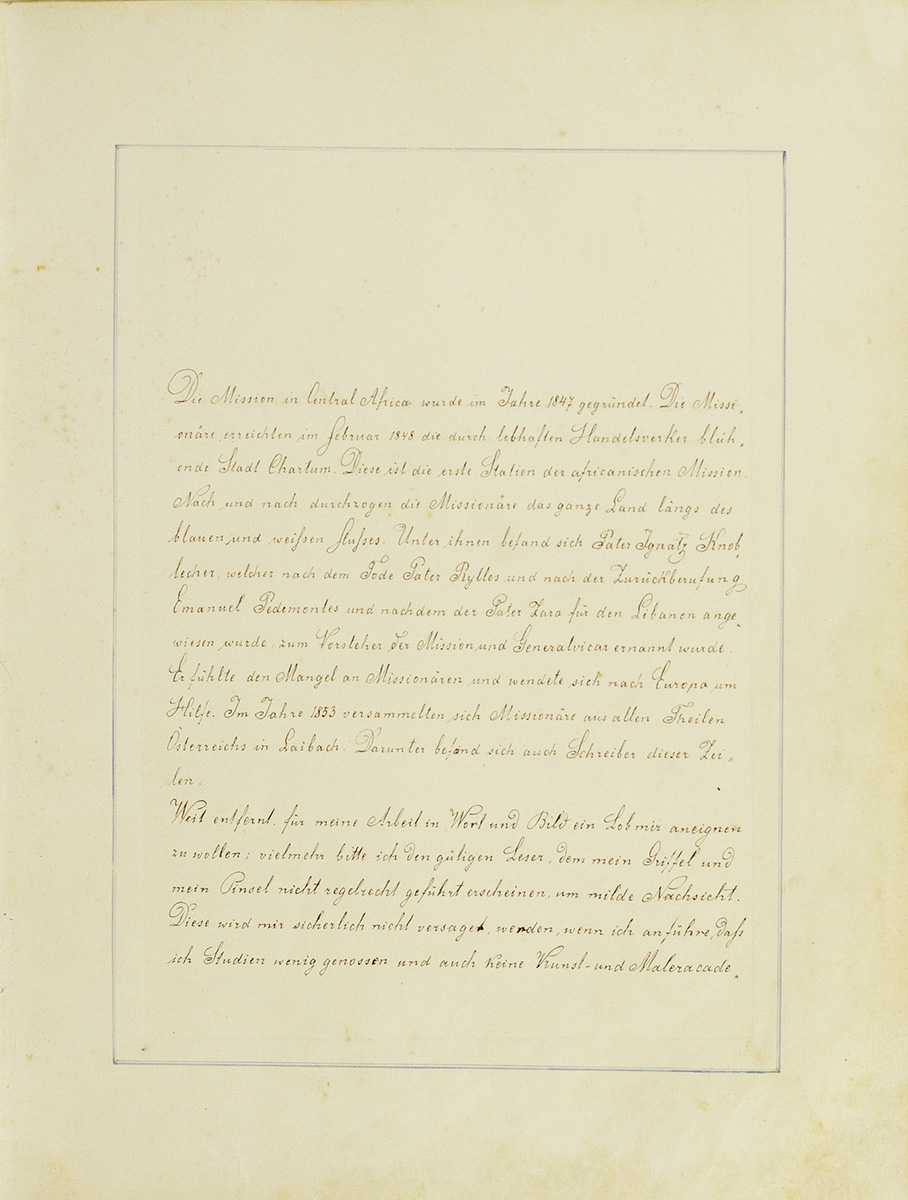 Die Mission in Central Africa wurde im Jahre 1847 gegründet. Die Missi„
onäre erreichten im Februar 1848 die durch lebhaften Handelsverker blüh„
ende Stadt Chartum. Diese ist die erste Station der africanischen Mission.
Nach und nach durchzogen die Missionäre das ganze Land längs des
blauen und weißen Flußes. Unter ihnen befand sich Pater Ignatz Knob„
lecher, welcher nach dem Tode Pater Ryllos und nach der Zurückberufung
Emanuel Pedemontes und nachdem der Pater Zara für den Libanon ange„
wiesen wurde, zum Vorsteher der Mission und Generalvicar ernannt wurde.
Er fühlte den Mangel an Missionären und wendete sich nach Europa um
Hilfe. Im Jahre 1853 versammelten sich Missionäre aus allen Theilen
Österreichs in Laibach. Darunter befand sich auch Schreiber dieser Zei„
len.
Weit entfernt, für meine Arbeit in Wort und Bild ein Lob mir aneignen
zu wollen; vielmehr bitte ich den gütigen Leser, dem mein Griffel und
mein Pinsel nicht regelrecht geführt erscheinen, um milde Nachsicht.
Diese wird mir sicherlich nicht versaget werden, wenn ich anführe, daß
ich Studien wenig genossen und auch keine Kunst- und Maleracade„